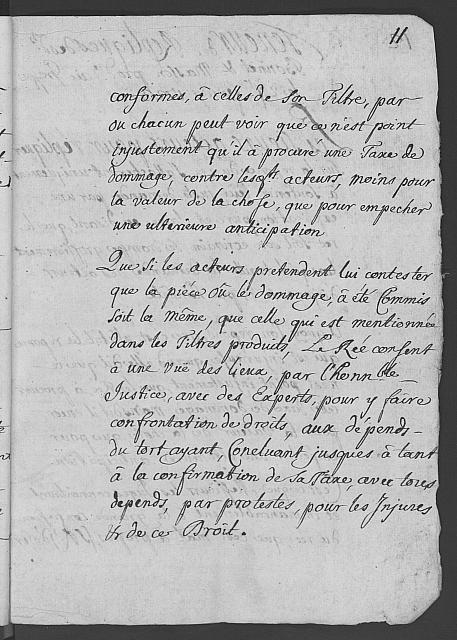 11
conformes, à celles de son Tiltre, par
ou chacun peut voir que ce n'est point
injustement qu'il à procure une Taxe de
dommage, contre lesqts acteurs, moins pour
la valeur de la chose, que pour empecher
une ulterieure anticipation
Que si les acteurs pretendent lui contester
que la piéce où le dommage, à été Commis
soit la même, que celle qui est mentionnée
dans les Tiltres produits, Le Rée consent
à une vuë des lieux, par l'honnble
Justice, avec des Experts, pour y faire
confrontation de droits, aux dépends
du tort ayant, Concluant jusques à tant
à la confirmation de sa Taxe, avec tous
depends, par protestes, pour les Injures
&r de ce Droit.